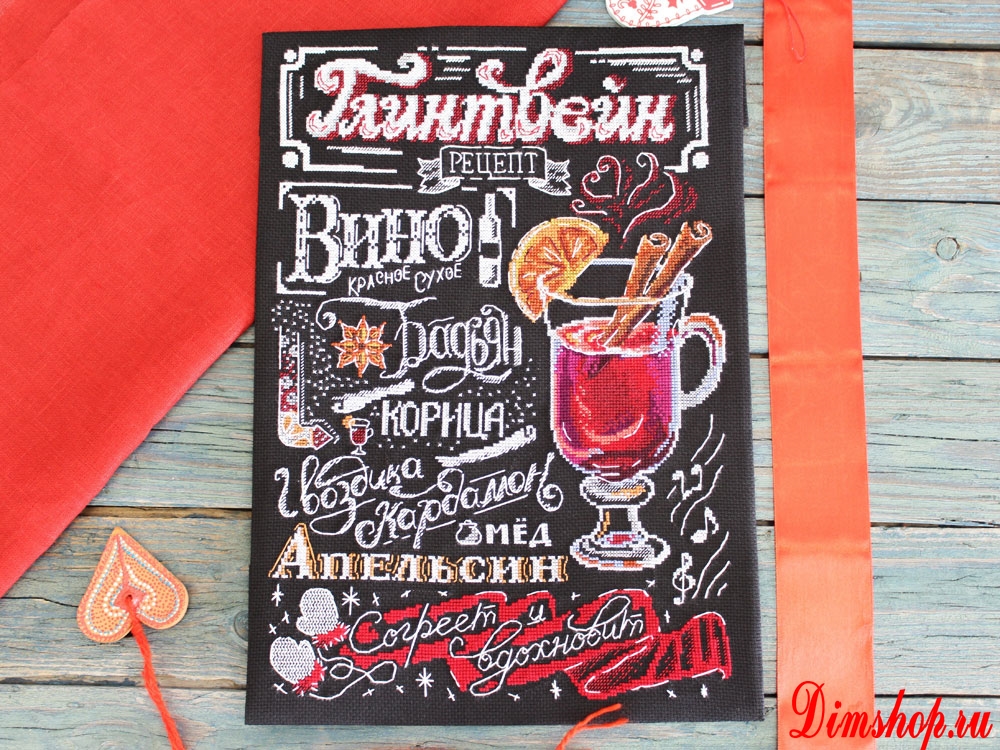 Глинтвейн
РЕЦЕПТ
Вино
красное сухое
Бадьян
КОРИЦА
Гвоздика
Кардамон
мёд
Апельсин
Согреет и
вдохновит
Dimshop.ru